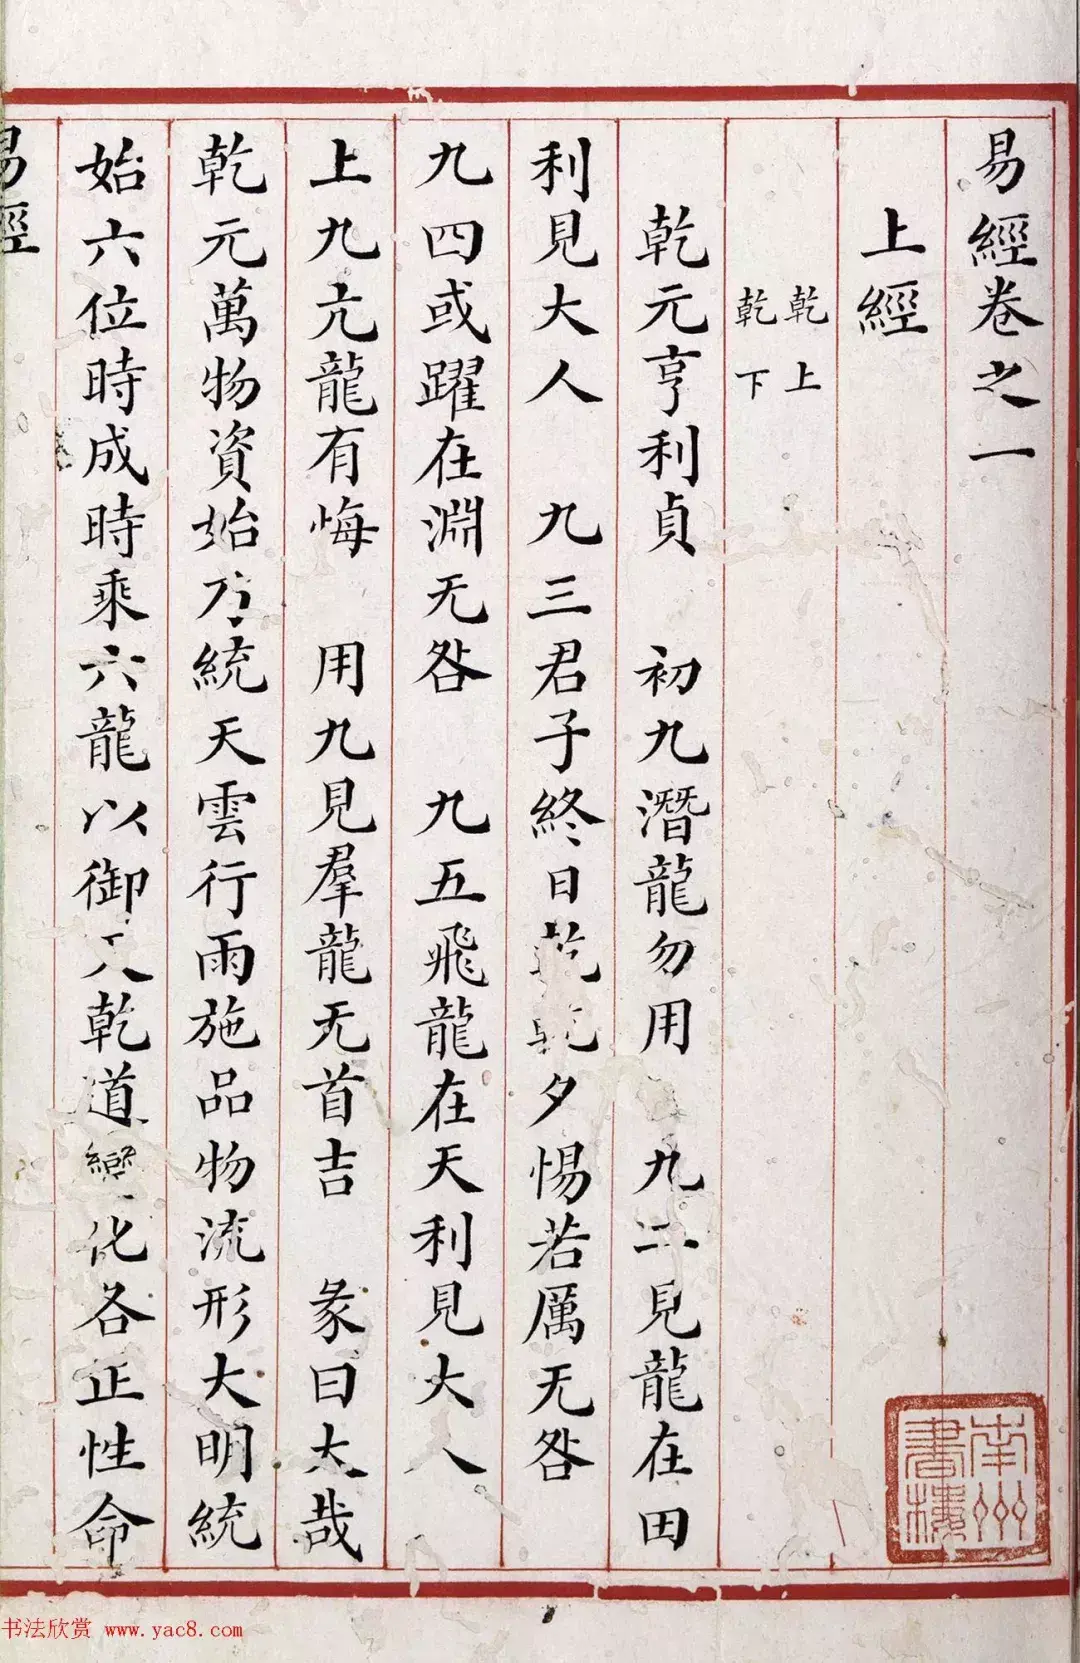 易經卷之一
上經
乾上
乾下
乾元亨利貞　初九潛龍勿用　九二見龍在田
利見大人　九三君子終日乾乾夕惕若厲无咎
九四或躍在淵无咎　九五飛龍在天利見大人
上九亢龍有悔　用九見羣龍无首吉　彖曰大哉
乾元萬物資始乃統天雲行雨施品物流形大明統
始六位時成時乘六龍以御天乾道變化各正性命
易經
南州書樓
书法欣赏 www.yac8.com